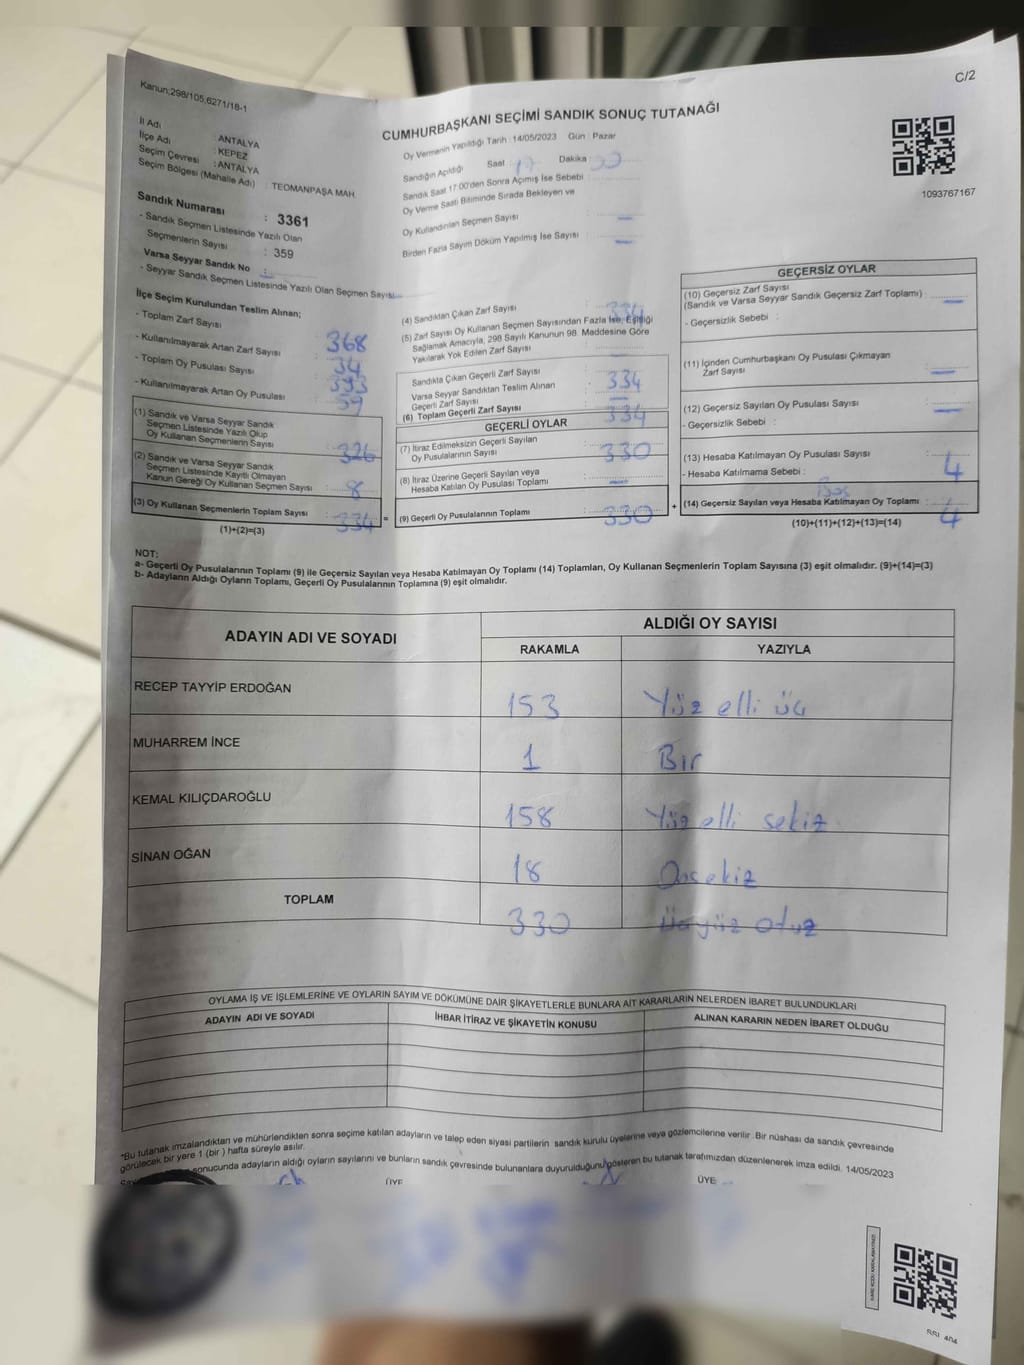 C/2
Kanun;298/105,6271/18-1
CUMHURBAŞKANI SEÇİMİ SANDIK SONUÇ TUTANAĞI
İl Adı : ANTALYA
İlçe Adı : KEPEZ
Seçim Çevresi : ANTALYA
Seçim Bölgesi (Mahalle Adı) : TEOMANPAŞA MAH.
Sandık Numarası : 3361
- Sandık Seçmen Listesinde Yazılı Olan
Seçmenlerin Sayısı : 359
Varsa Seyyar Sandık No :
- Seyyar Sandık Seçmen Listesinde Yazılı Olan Seçmen Sayısı
Oy Vermenin Yapıldığı Tarih : 14/05/2023 Gün : Pazar
Sandığın Açıldığı Saat 17 Dakika
Sandık Saat 17:00'den Sonra Açımış İse Sebebi :
Oy Verme Saati Bitiminde Sırada Bekleyen ve
Oy Kullandırılan Seçmen Sayısı : —
Birden Fazla Sayım Döküm Yapılmış İse Sayısı : —
1093767167
İlçe Seçim Kurulundan Teslim Alınan;
- Toplam Zarf Sayısı 368
- Kullanılmayarak Artan Zarf Sayısı 34
- Toplam Oy Pusulası Sayısı 393
- Kullanılmayarak Artan Oy Pusulası 59
(1) Sandık ve Varsa Seyyar Sandık
Seçmen Listesinde Yazılı Olup
Oy Kullanan Seçmenlerin Sayısı : 326
(2) Sandık ve Varsa Seyyar Sandık
Seçmen Listesinde Kayıtlı Olmayan
Kanun Gereği Oy Kullanan Seçmen Sayısı : 8
(3) Oy Kullanan Seçmenlerin Toplam Sayısı : 334 =
(1)+(2)=(3)
(4) Sandıktan Çıkan Zarf Sayısı : 334
(5) Zarf Sayısı Oy Kullanan Seçmen Sayısından Fazla İse, Eşitliği
Sağlamak Amacıyla, 298 Sayılı Kanunun 98. Maddesine Göre
Yakılarak Yok Edilen Zarf Sayısı :
Sandıkta Çıkan Geçerli Zarf Sayısı : 334
Varsa Seyyar Sandıktan Teslim Alınan
Geçerli Zarf Sayısı : —
(6) Toplam Geçerli Zarf Sayısı : 334
GEÇERLİ OYLAR
(7) İtiraz Edilmeksizin Geçerli Sayılan
Oy Pusulalarının Sayısı : 330
(8) İtiraz Üzerine Geçerli Sayılan veya
Hesaba Katılan Oy Pusulası Toplamı : —
(9) Geçerli Oy Pusulalarının Toplamı : 330 +
GEÇERSİZ OYLAR
(10) Geçersiz Zarf Sayısı
(Sandık ve Varsa Seyyar Sandık Geçersiz Zarf Toplamı) : —
- Geçersizlik Sebebi :
(11) İçinden Cumhurbaşkanı Oy Pusulası Çıkmayan
Zarf Sayısı : —
(12) Geçersiz Sayılan Oy Pusulası Sayısı : —
- Geçersizlik Sebebi :
(13) Hesaba Katılmayan Oy Pusulası Sayısı : 4
- Hesaba Katılmama Sebebi : Boş
(14) Geçersiz Sayılan veya Hesaba Katılmayan Oy Toplamı : 4
(10)+(11)+(12)+(13)=(14)
NOT:
a- Geçerli Oy Pusulalarının Toplamı (9) ile Geçersiz Sayılan veya Hesaba Katılmayan Oy Toplamı (14) Toplamları, Oy Kullanan Seçmenlerin Toplam Sayısına (3) eşit olmalıdır. (9)+(14)=(3)
b- Adayların Aldığı Oyların Toplamı, Geçerli Oy Pusulalarının Toplamına (9) eşit olmalıdır.
ADAYIN ADI VE SOYADI ALDIĞI OY SAYISI
RAKAMLA YAZIYLA
RECEP TAYYİP ERDOĞAN 153 Yüz elli üç
MUHARREM İNCE 1 Bir
KEMAL KILIÇDAROĞLU 158 Yüz elli sekiz
SİNAN OĞAN 18 Onsekiz
TOPLAM 330 Üçyüz otuz
OYLAMA İŞ VE İŞLEMLERİNE VE OYLARIN SAYIM VE DÖKÜMÜNE DAİR ŞİKAYETLERLE BUNLARA AİT KARARLARIN NELERDEN İBARET BULUNDUKLARI
ADAYIN ADI VE SOYADI İHBAR İTİRAZ VE ŞİKAYETİN KONUSU ALINAN KARARIN NEDEN İBARET OLDUĞU
*Bu tutanak imzalandıktan ve mühürlendikten sonra seçime katılan adayların ve talep eden siyasi partilerin sandık kurulu üyelerine veya gözlemcilerine verilir. Bir nüshası da sandık çevresinde
görülecek bir yere 1 (bir) hafta süreyle asılır.
sonucunda adayların aldığı oyların sayılarını ve bunların sandık çevresinde bulunanlara duyurulduğunu gösteren bu tutanak tarafımızdan düzenlenerek imza edildi. 14/05/2023
ÜYE ÜYE